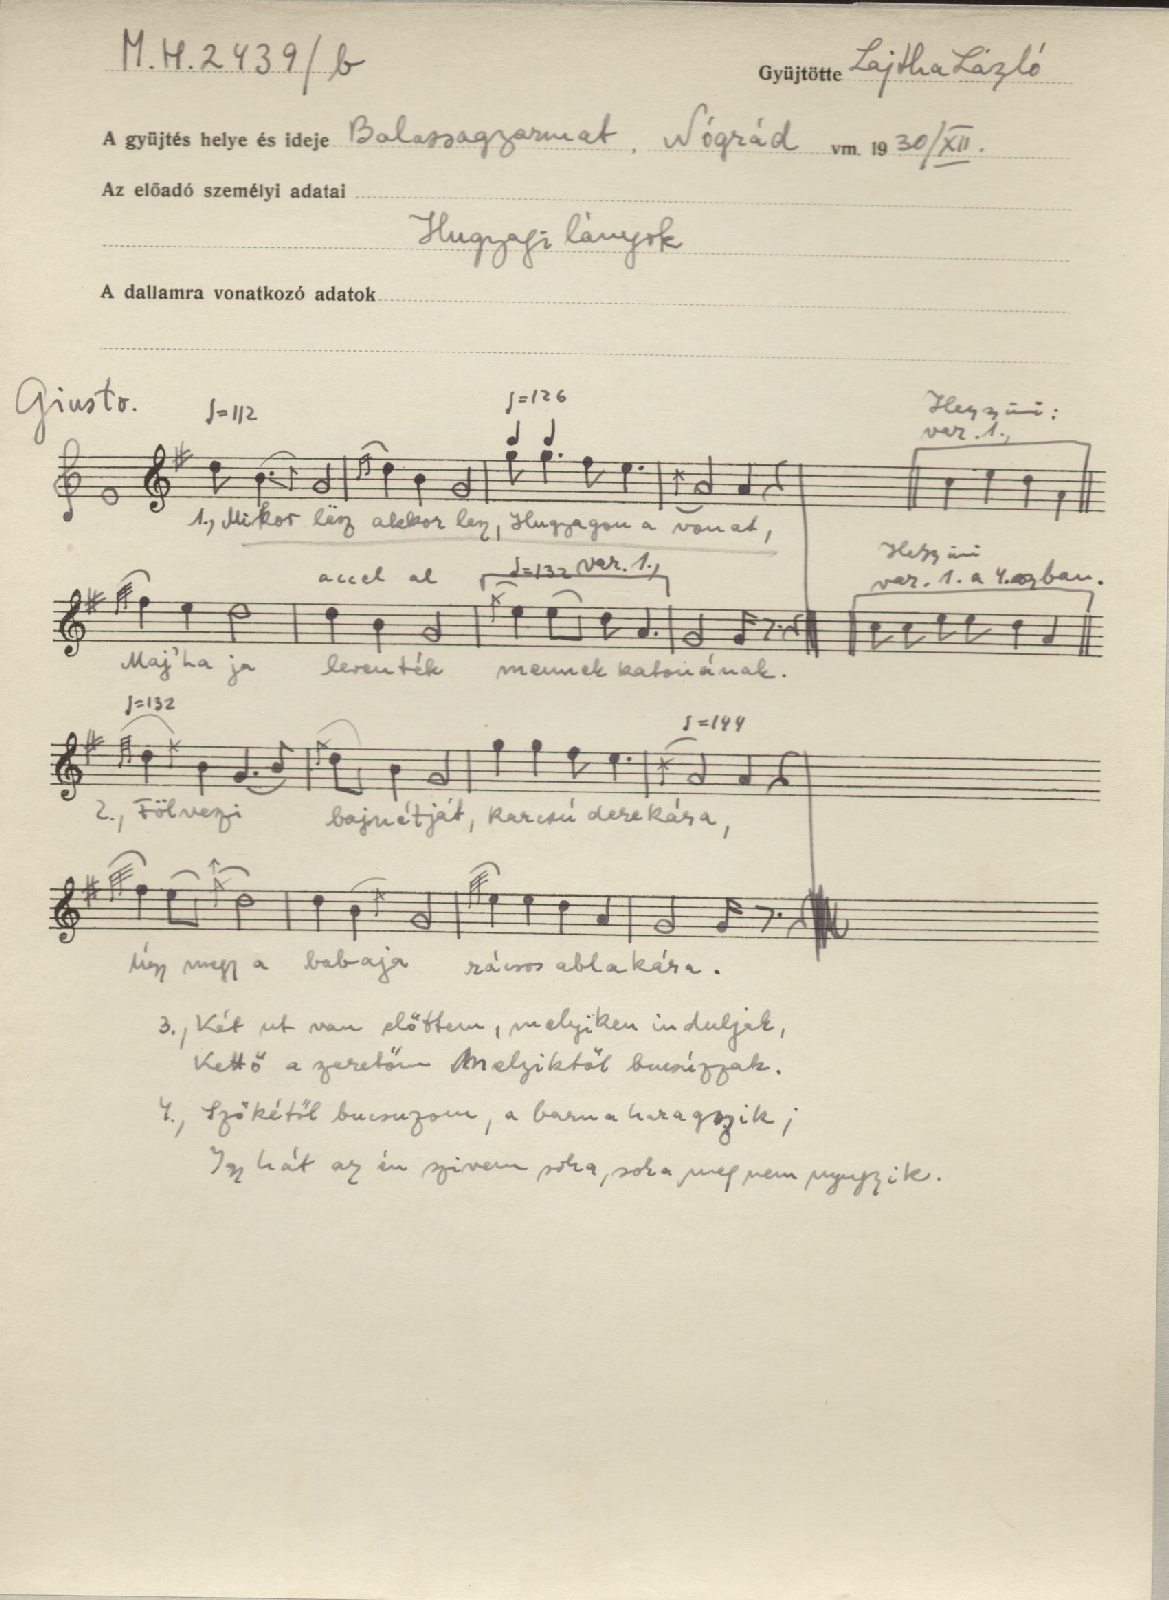 M.H.2439/b
Gyüjtötte Lajtha László
A gyüjtés helye és ideje Balassagyarmat, Nógrád vm. 19 30/XII.
Az előadó személyi adatai
Hugyagi lányok
A dallamra vonatkozó adatok
Giusto.
♩=112
♩=126
var. 1.,
1., Mikor lësz akkor lesz, Hugyagon a vonat,
accel al
♩=132 var. 1.,
var. 1. a 4.
Maj'ha ja leventék mennek katonának.
♩=132
♩=144
2., Fölveszi bajnétját, karcsú derekára,
Úgy megy a babaja rácsos ablakára.
3., Két ut van előttem, melyiken induljak,
Kettő a szeretőm Melyiktől bucsúzzak.
4., Szőkétől bucsuzom, a barna haragszik;
Igy hát az én szivem soha, soha meg nem nyugszik.